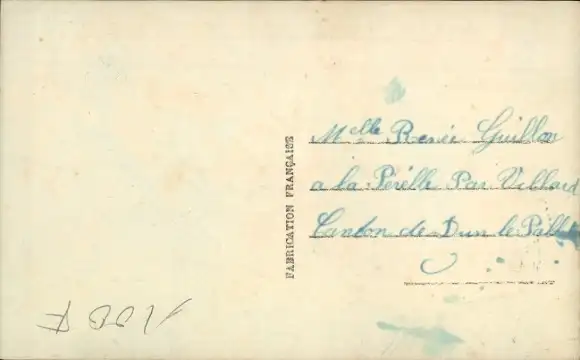 Melle Renée Guillon
a la Perelle Par Villard
Canton de Dun le Pall
FABRICATION FRANÇAISE